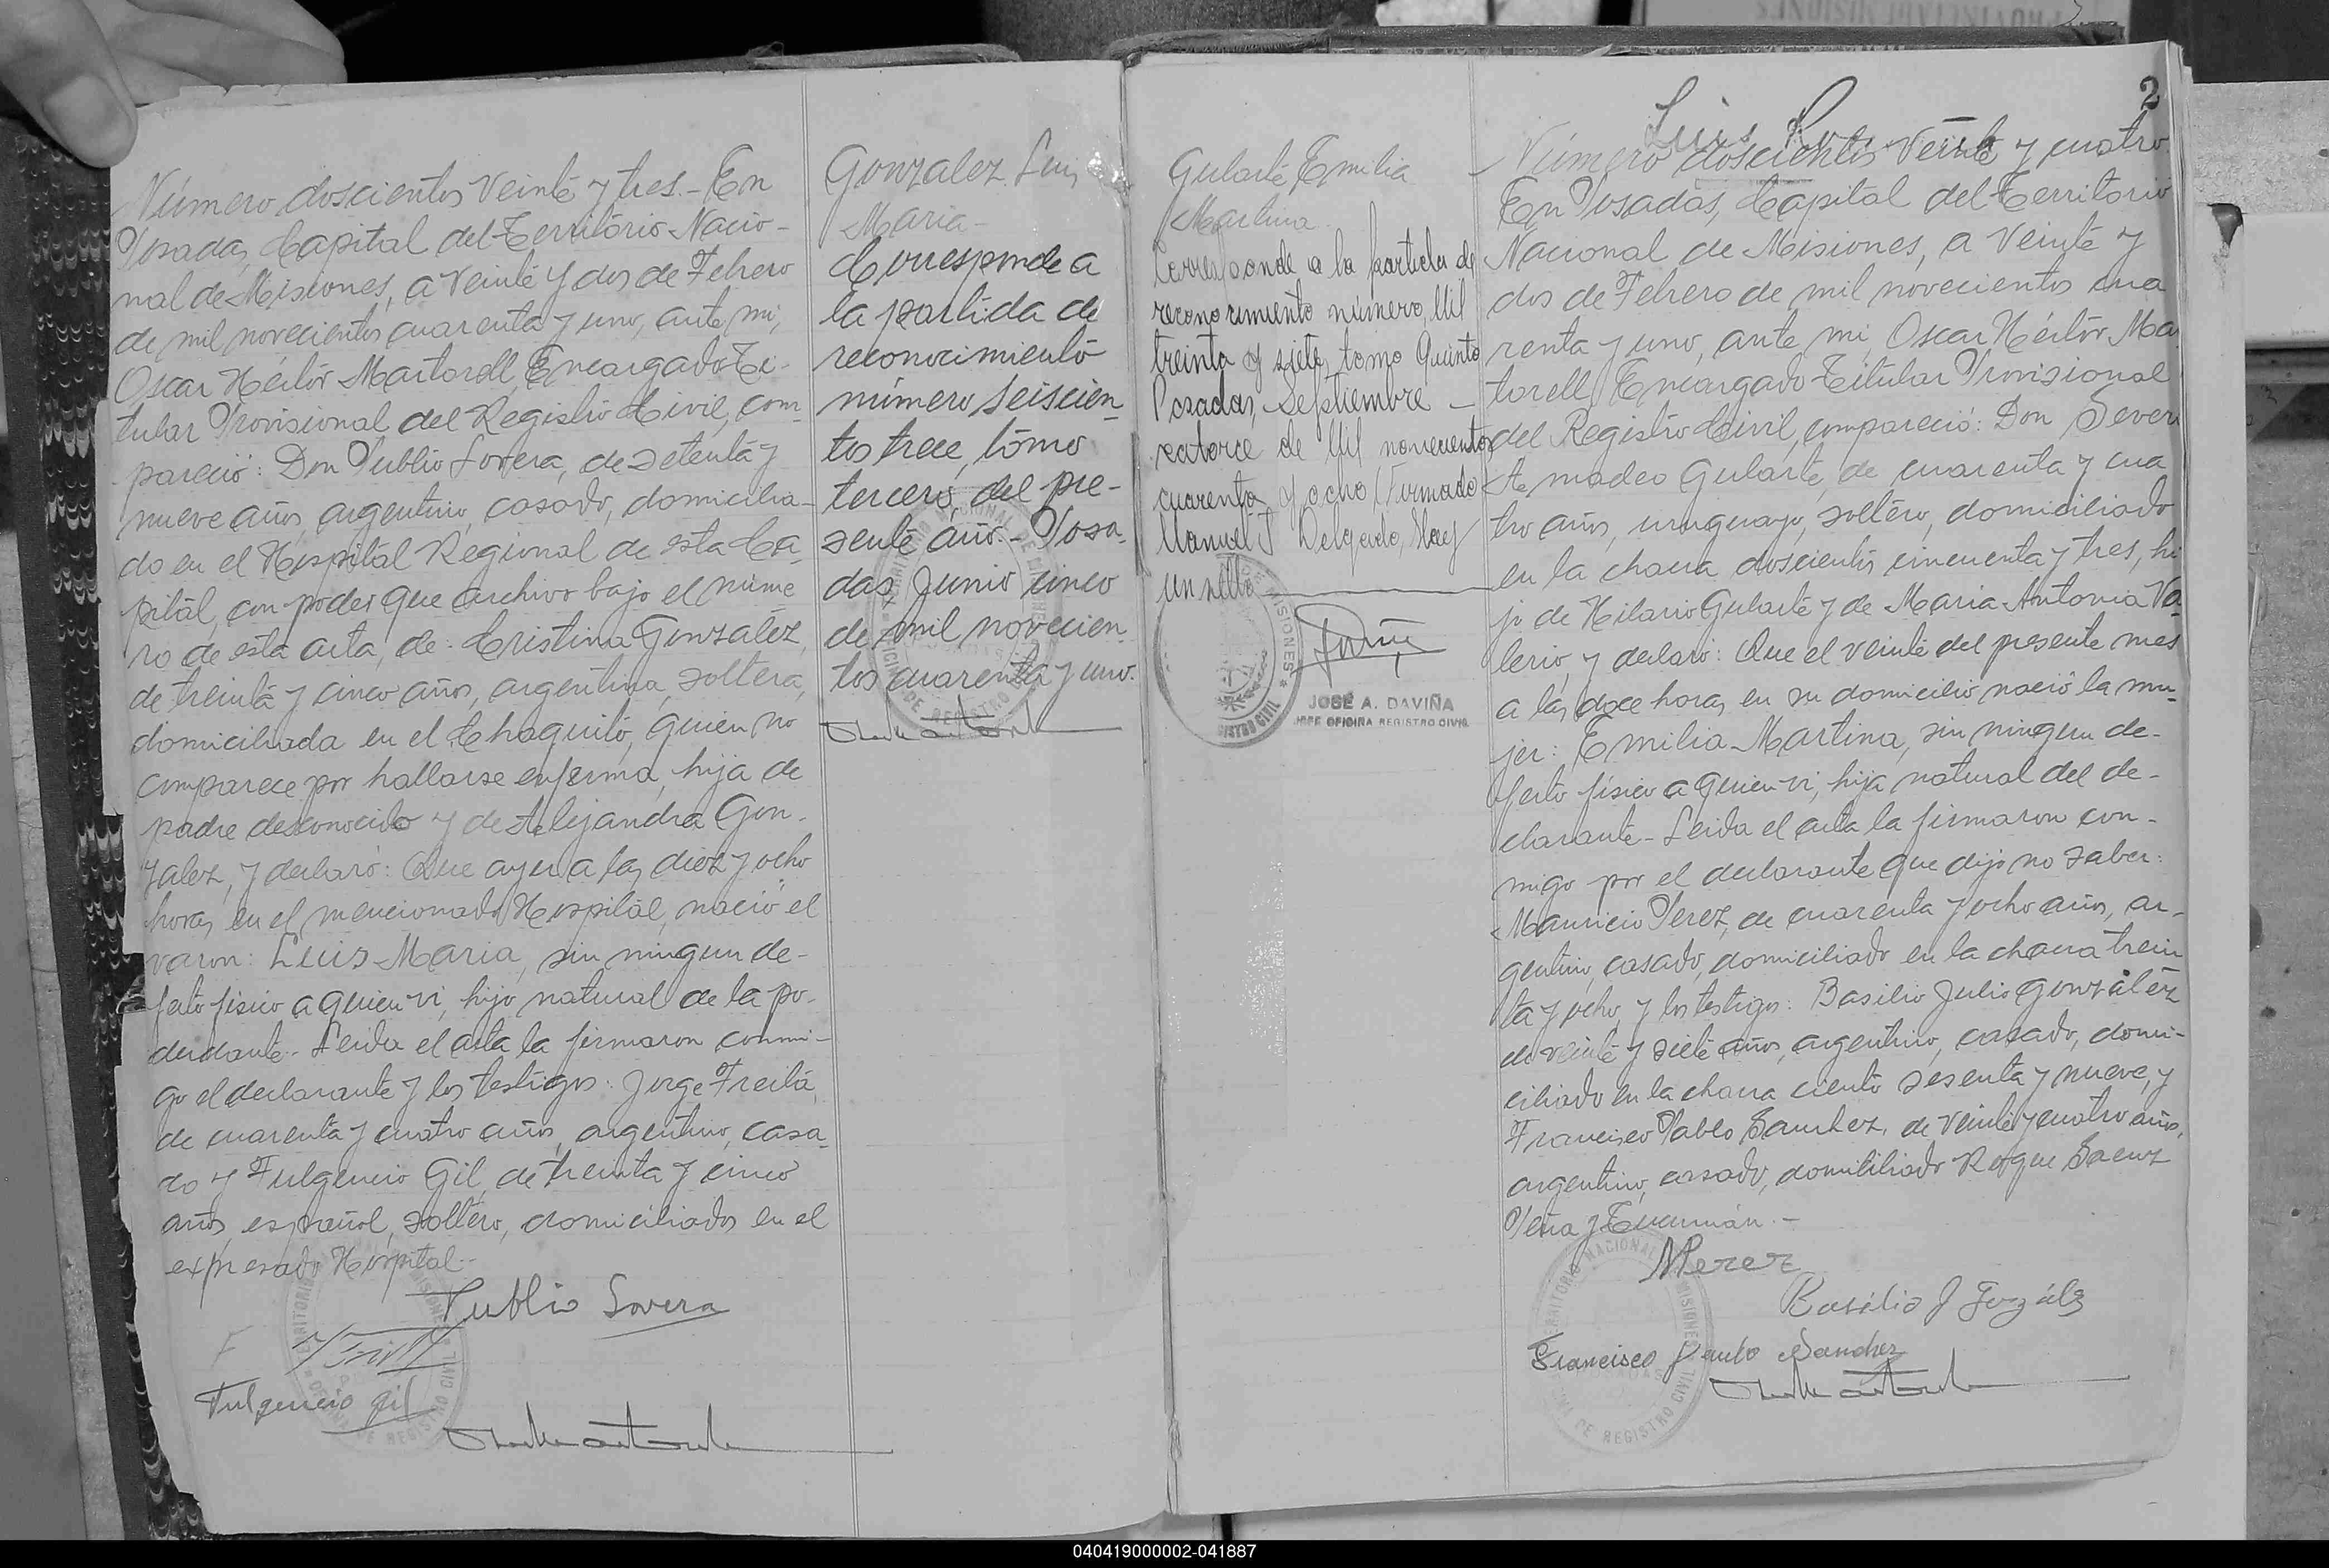 Número doscientos veinte y tres.- En
Posadas, Capital del Territorio Nacio-
nal de Misiones, a veinte y dos de Febrero
de mil novecientos cuarenta y uno, ante mi,
Oscar Héctor Martorell, Encargado Ti-
tular Provisional del Registro Civil, com-
pareció: Don Publio Lovera, de setenta y
nueve años, argentino, casado, domicilia-
do en el Hospital Regional de esta Ca-
pital, con poder que archivo bajo el núme
ro de esta acta, de: Cristina González,
de treinta y cinco años, argentina, soltera,
domiciliada en el Chaquito, quien no
comparece por hallarse enferma, hija de
padre desconocido y de Alejandra Gon-
zalez, y declaró: Que ayer a las diez y ocho
horas, en el mencionado Hospital, nació el
varon: Luis Maria, sin ningun de-
fecto físico a quien vi, hijo natural de la po-
derdante.- Leida el acta la firmaron conmi-
go el declarante y los testigos: Jorge Freita,
de cuarenta y cuatro años, argentino, casa-
do y Fulgencio Gil, de treinta y cinco
años, español, soltero, domiciliados en el
expresado Hospital.-
Publio Lovera
Fulgencio Gil
Gonzalez Luis
Maria-
Corresponde a
la partida de
reconocimiento
número seiscien-
tos trece, tomo
tercero, del pre-
sente año.- Posa-
das, Junio cinco
de mil novecien-
tos cuarenta y uno.
Gularte, Emilia
Martina
Corresponde a la partida de
reconocimiento número, Mil
treinta y siete, tomo Quinto
Posadas, Septiembre -
catorce de Mil novecientos
cuarenta y ocho (Firmado
Manuel J Delgado, Hay
un sello
JOSÉ A. DAVIÑA
JEFE OFICINA REGISTRO CIVIL
2
Luis
Número doscientos veinte y cuatro
En Posadas, Capital del Territorio
Nacional de Misiones, a veinte y
dos de Febrero de mil novecientos cua
renta y uno, ante mi, Oscar Héctor Mar
torell, Encargado Titular Provisional
del Registro Civil, compareció: Don Severo
Amadeo Gularte, de cuarenta y cua
tro años, uruguayo, soltero, domiciliado
en la chacra doscientos cincuenta y tres, hi
jo de Hilario Gularte y de Maria Antonia Va-
lerio, y declaró: Que el veinte del presente mes
a las doce horas, en su domicilio nació la mu-
jer: Emilia Martina, sin ningun de-
fecto físico a quien vi, hija natural del de-
clarante.- Leida el acta la firmaron con-
migo por el declarante que dijo no saber:
Mauricio Perez, de cuarenta y ocho años, ar-
gentino, casado, domiciliado en la chacra trein
ta y ocho, y los testigos: Basilio Julio González
de veinte y siete años, argentino, casado, domi-
ciliado en la chacra ciento sesenta y nueve, y
Francisco Pablo Sanchez, de veinte y cuatro años,
argentino, casado, domiciliado Roque Saenz
Peña y Tucumán.-
MPerez
Basilio J Gozález
Francisco Paulo Sanchez
040419000002-041887